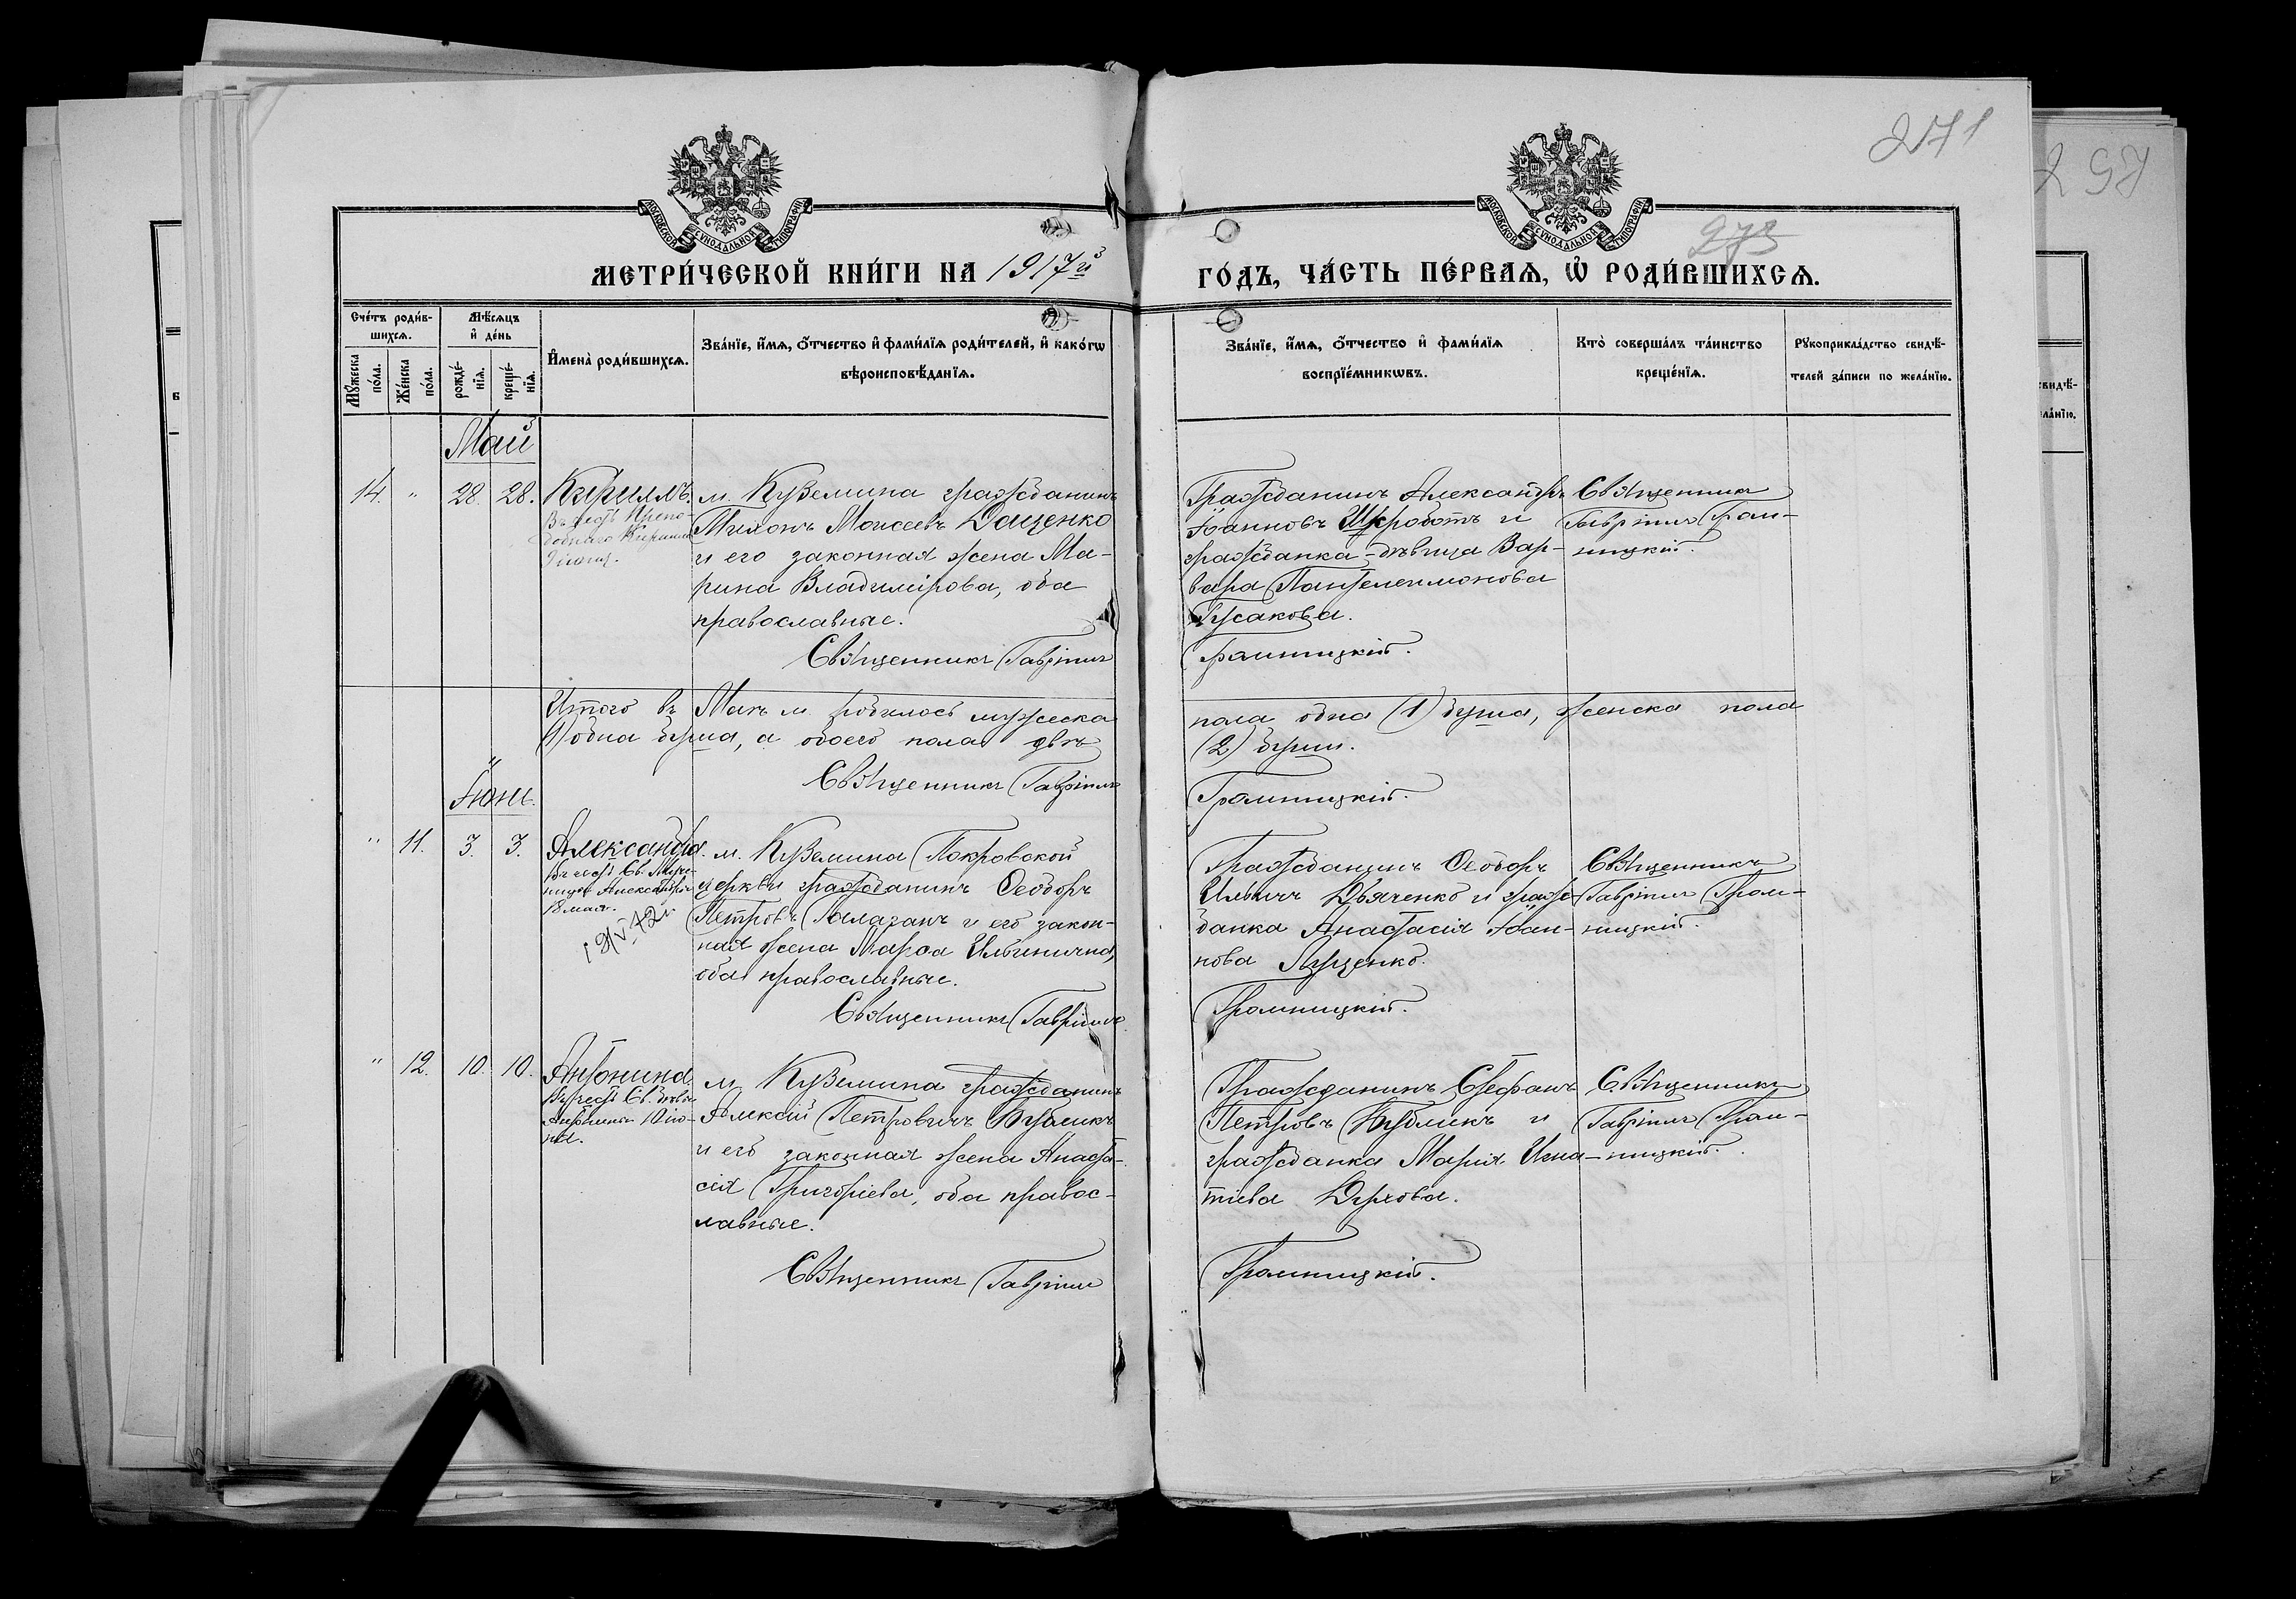 271
257
273
МОСКОВСКОЙ СѴНОДАЛЬНОЙ ТИПОГРАФІИ
МОСКОВСКОЙ СѴНОДАЛЬНОЙ ТИПОГРАФІИ
МЕТРИ́ЧЕСКОЙ КНИ́ГИ НА 1917й ГО́ДЪ, ЧА́СТЬ ПЕ́РВАѦ, Ѡ РОДИ́ВШИХСѦ.
Сче́тъ роди́в-
шихсѧ.
Мꙋ́жеска по́ла.
Же́нска по́ла.
Мѣ́сѧцъ
и҆ де́нь
рожде́-
нїѧ.
креще́-
нїѧ.
И҆мена̀ роди́вшихсѧ.
Зва́нїе, и҆́мѧ, ѻ҆́тчество и҆ фами́лїѧ роди́телей, и҆ како́гѡ
вѣроисповѣ́данїѧ.
Зва́нїе, и҆́мѧ, ѻ҆́тчество и҆ фами́лїѧ
воспрїе́мникѡвъ.
Кто̀ соверша́лъ та́инство
креще́нїѧ.
Рꙋкоприкла́дство свидѣ́-
телей за́писи по жела́нїю.
Май
14. " 28. 28. Кириллъ.
Въ честь Препо-
добнаго Кирилла
9 іюня.
м. Куземина гражданинъ
Тихонъ Моисеевъ Даценко
и его законная жена Ма-
рина Владимірова, оба
православные.
Священникъ Гавріилъ
Гражданинъ Александръ
Іоанновъ Шкроботъ и
гражданка-дѣвица Вар-
вара Пантелеимонова
Гусакова.
Громницкій.
Священникъ
Гавріилъ Гром-
ницкій.
Итого въ Маѣ м. родилось мужеска пола одна (1) душа, женска пола
(1) одна душа, а обоего пола двѣ (2) души.
Священникъ Гавріилъ Громницкій.
Іюнь.
" 11. 3. 3. Александра.
Въ честь Св. Муче-
ницы Александры
18 мая.
м. Куземина Покровской
церкви гражданинъ Ѳеодоръ
Петровъ Галаганъ и его закон-
ная жена Марѳа Ильинична,
оба православные.
Священникъ Гавріилъ
Гражданинъ Ѳеодоръ
Ильичъ Дьяченко и граж-
данка Анастасія Іоан-
нова Луценко.
Громницкій.
Священникъ
Гавріилъ Гром-
ницкій.
" 12. 10. 10. Антонина.
Въ честь Св. дѣвы
Антонины 10 ію-
ня.
м. Куземина гражданинъ
Алексій Петровичъ Бубликъ
и его законная жена Анаста-
сія Григоріева, оба правос-
лавные.
Священникъ Гавріилъ
Гражданинъ Стефанъ
Петровъ Бубликъ и
гражданка Марія Игна-
тіева Духова.
Громницкій.
Священникъ
Гавріилъ Гром-
ницкій.